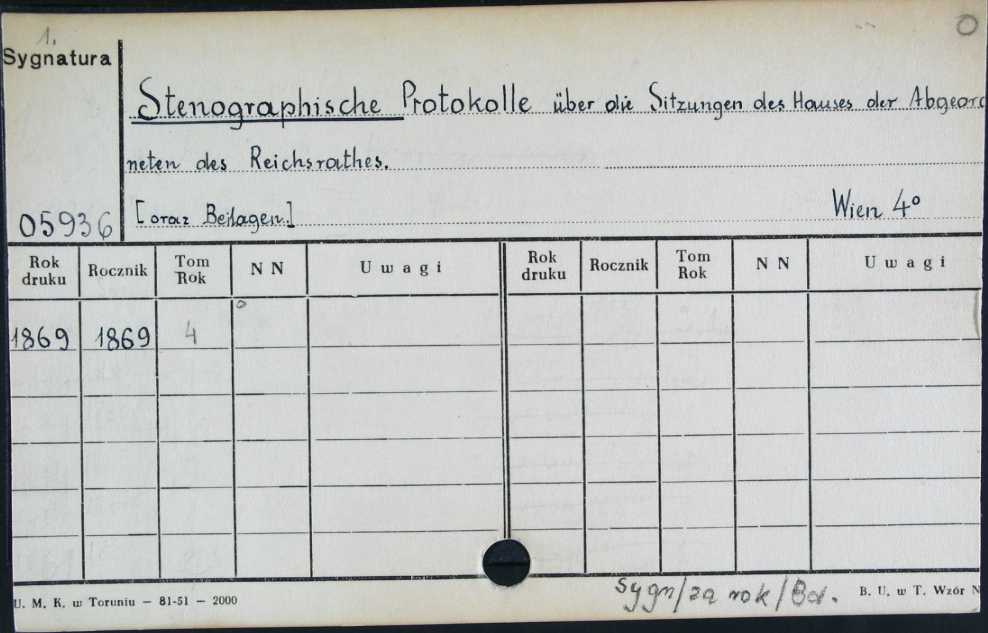 1.
0
Sygnatura
Stenographische Protokolle über die Sitzungen des Hauses der Abgeord
neten des Reichsrathes.
05936 [oraz Beilagen] Wien 4°
Rok druku Rocznik Tom Rok N N Uwagi Rok druku Rocznik Tom Rok N N Uwagi
1869 1869 4
U. M. K. w Toruniu – 81-51 – 2000
Sygn/za rok/
B. U. w T. Wzór N